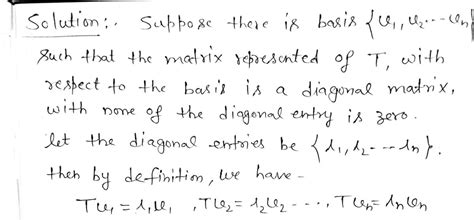 Solution:. Suppose there is basis {v₁, v₂ --- vₙ}
such that the matrix represented of T, with
respect to the basis is a diagonal matrix,
with none of the diagonal entry is zero.
let the diagonal entries be {λ₁, λ₂ --- λₙ}.
then by definition, we have -
Tv₁ = λ₁v₁ , Tv₂ = λ₂v₂ - - -, Tvₙ = λₙvₙ